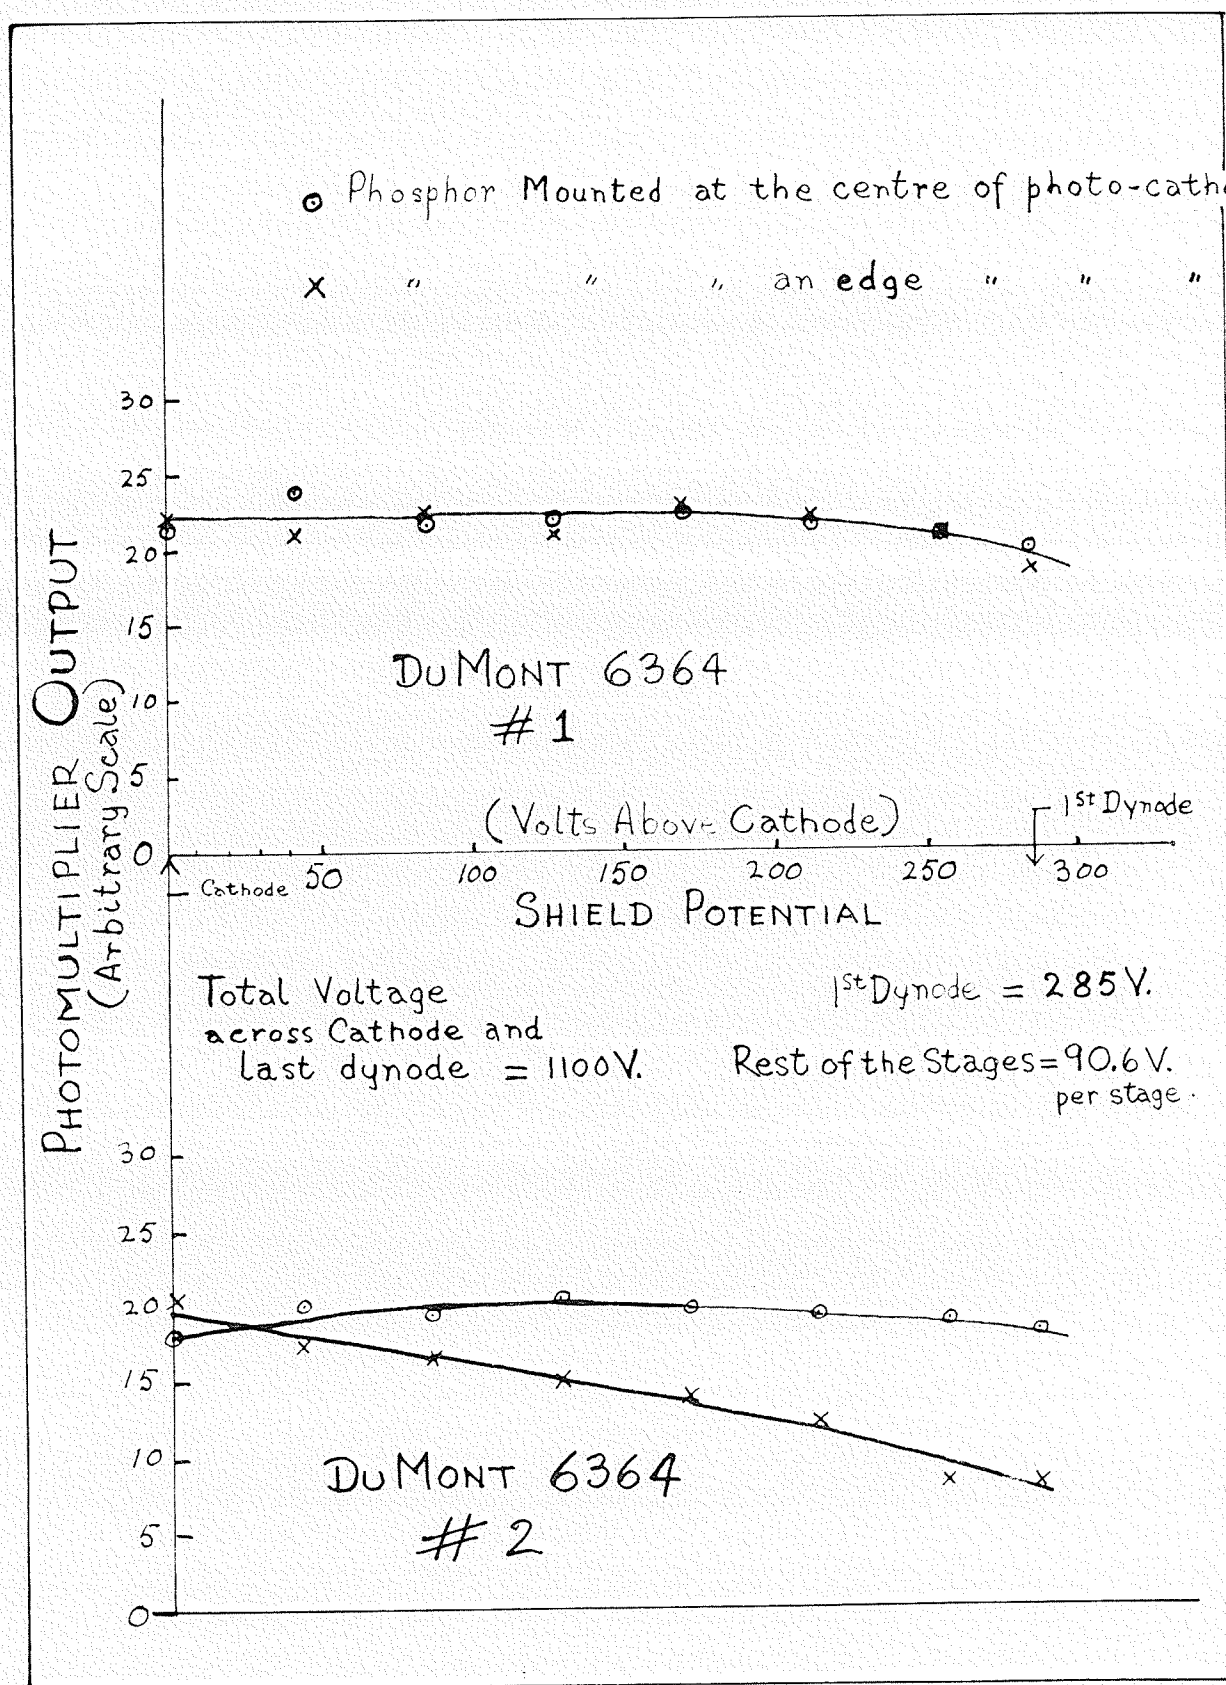 ⊙ Phosphor Mounted at the centre of photo-catho
X " " " an edge " " "
30
25
20
15
10
5
0
PHOTOMULTIPLIER OUTPUT
(Arbitrary Scale)
DUMONT 6364
# 1
(Volts Above Cathode)
1st Dynode
Cathode 50 100 150 200 250 300
SHIELD POTENTIAL
Total Voltage
across Cathode and
last dynode = 1100V.
1st Dynode = 285V.
Rest of the Stages = 90.6V.
per stage.
30
25
20
15
10
5
0
DUMONT 6364
# 2